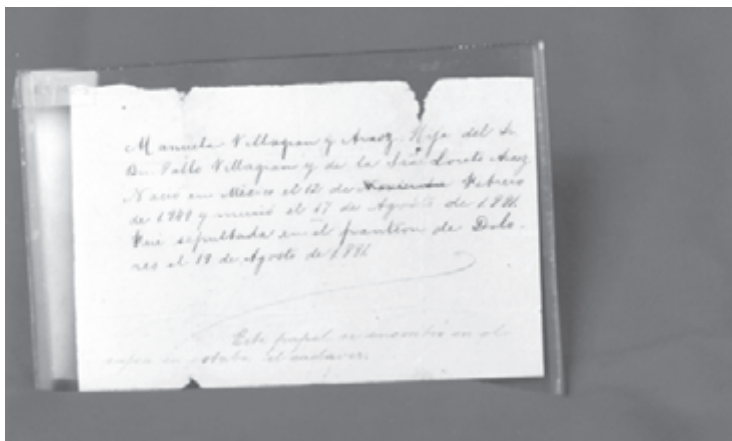 Manuela Villagran y Araoz. Hija del Sr.
Dn. Pablo Villagran y de la Sra. Loreto Araoz
Nació en México el 12 de Febrero
de 18 y murió el 17 de Agosto de 18
Fué sepultada en el panteon de Dolo-
res el 19 de Agosto de 18
Este papel se encontró en el
estaba el cadaver.